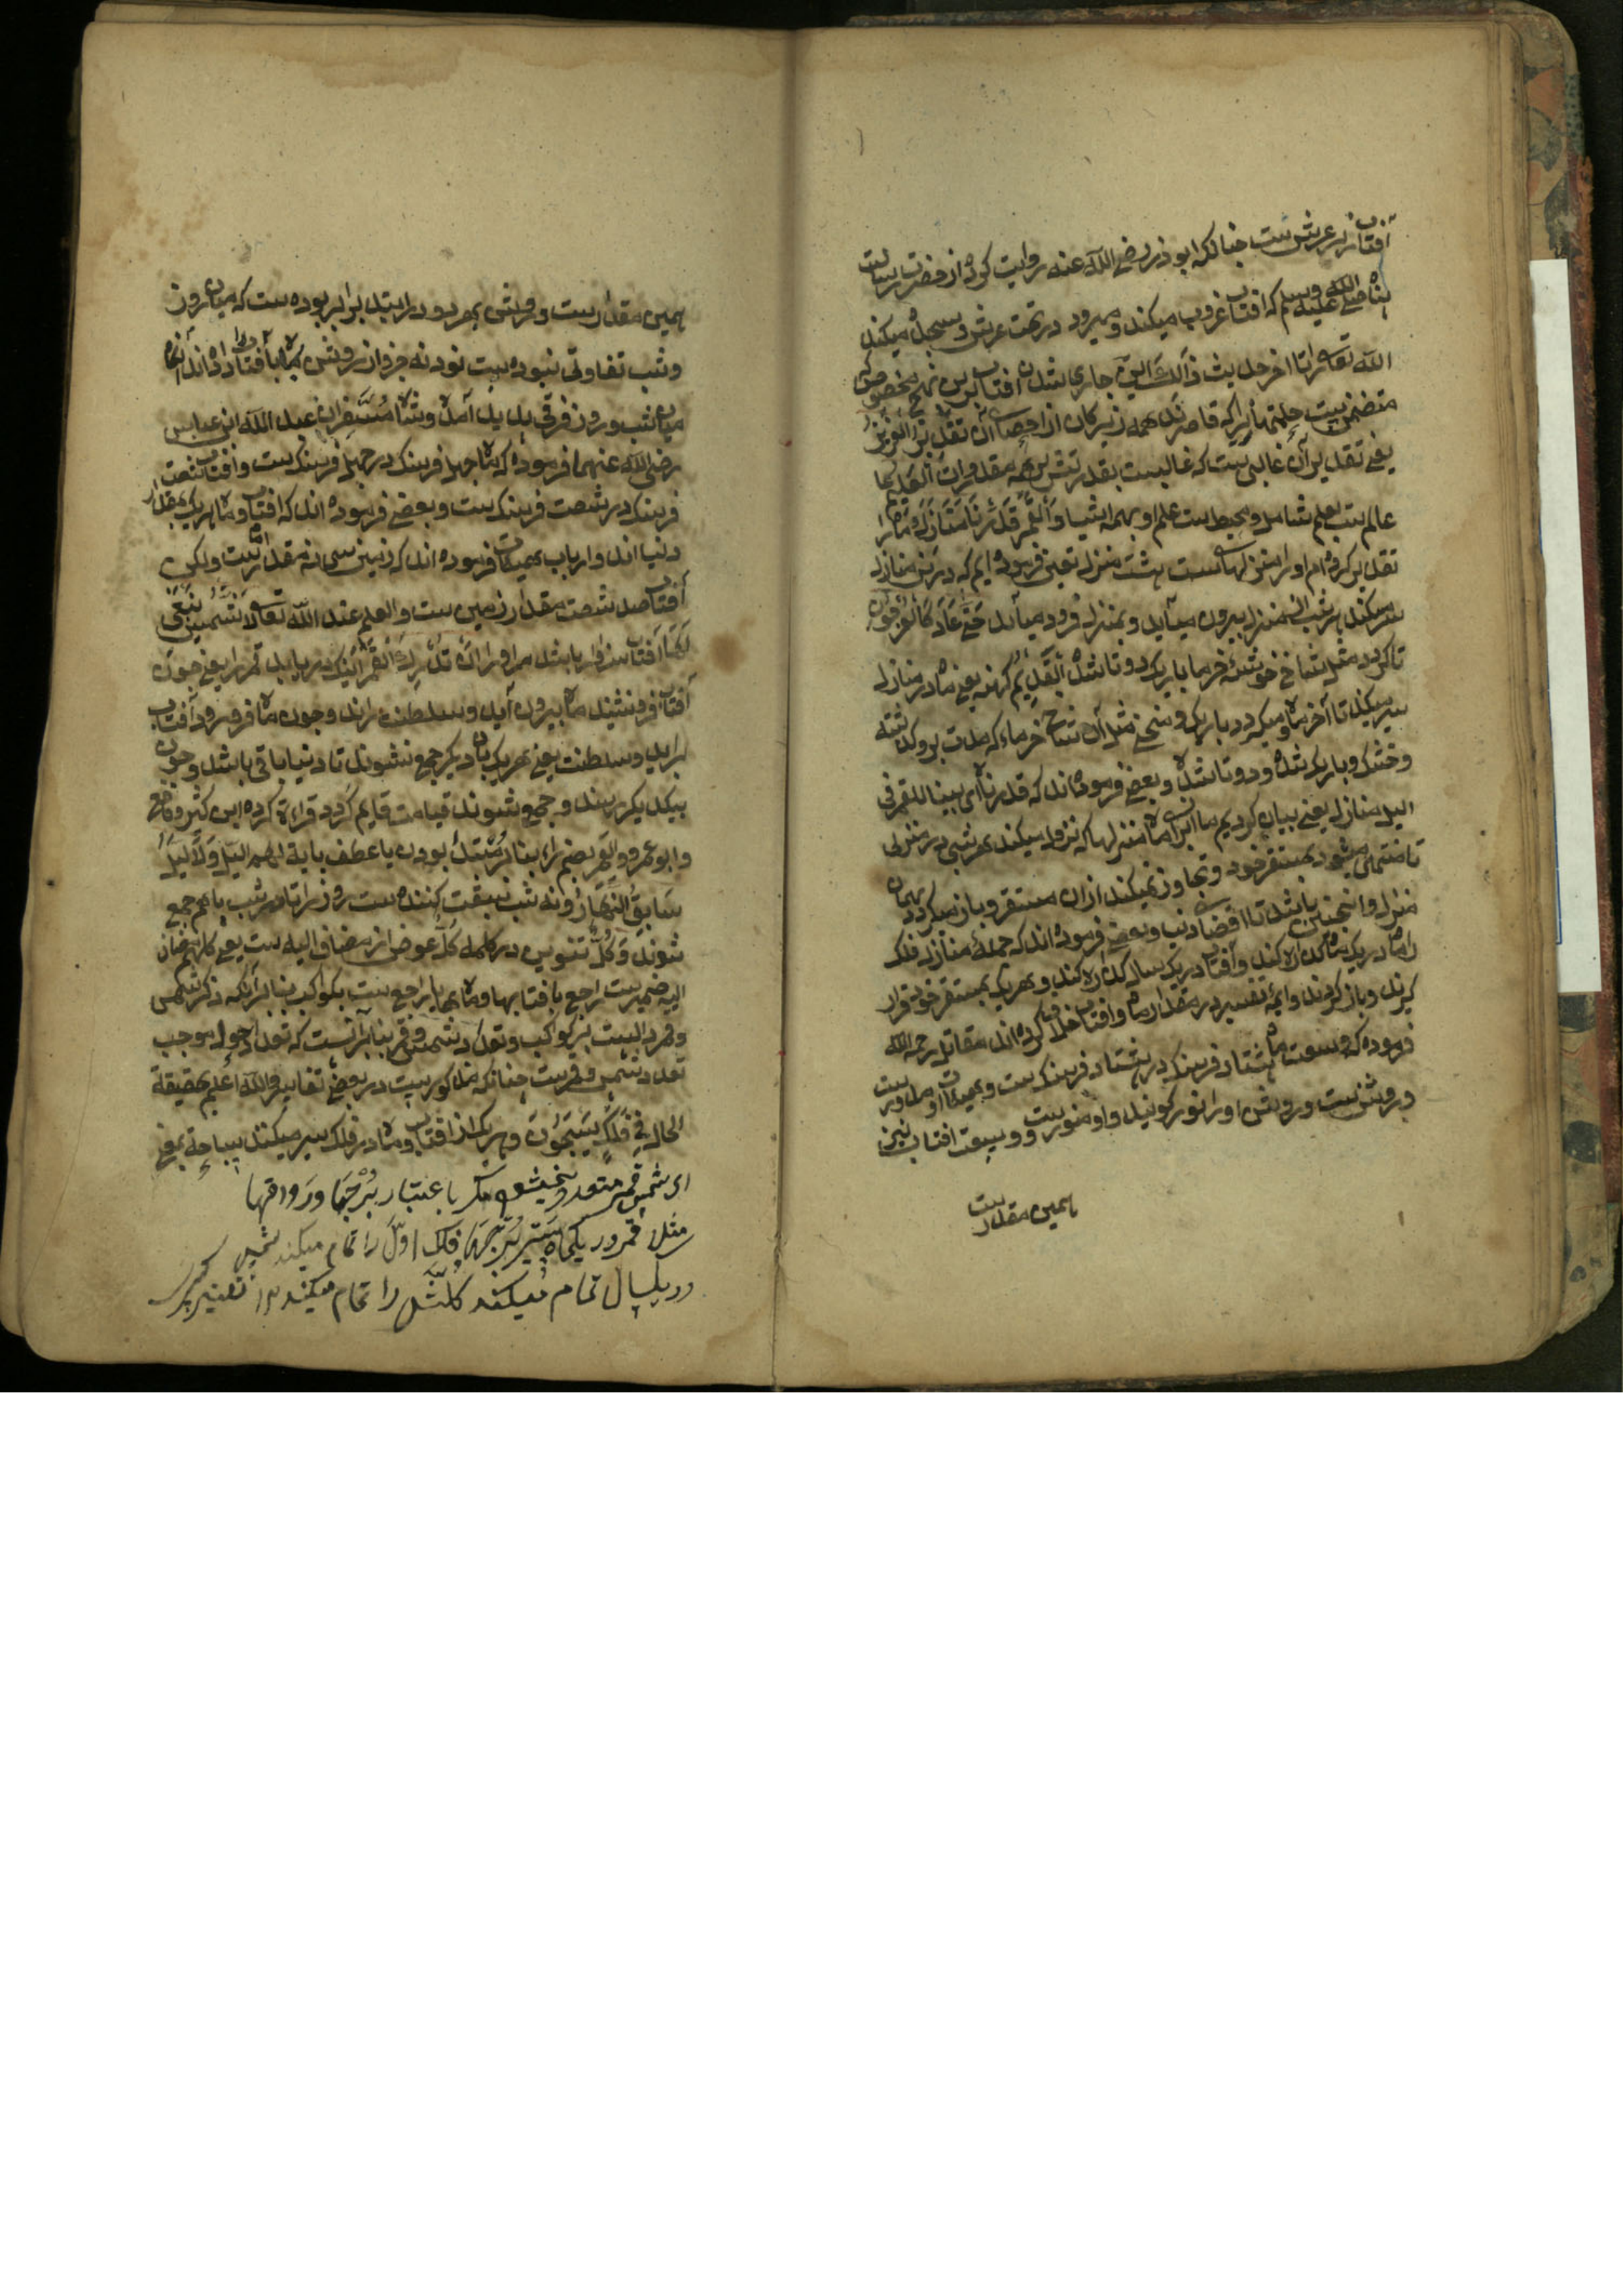 آفتاب زیر عرش ست چنانکه ابوذر رضی الله عنه روایت کرده از حضرت رسالت
پناه صلی الله علیه وسلم که افتاب غروب میکند و میرود در تحت عرش و سجده میکند
الله تعالی را تا اخر حدیث ذٰلِكَ این جاری شدن افتاب برین نهج مخصوص که
متضمن ست حکمتها را که قاصرند همه زیرکان از احصای آن تَقْدِیْرُ الْعَزِیْزِ
یعنی تقدیر آن غالبی ست که غالبست بقدرتش بر همه مقدورات الْعَلِیْمِ
عالم ست بعلم شامل و محیط ست علم او بهمه اشیا وَالْقَمَرَ قَدَّرْنَاهُ مَنَازِلَ و ماه را
تقدیر کرده ام او را منزلها بیست هشت منزل تعین فرموده ایم که درین منازل
سیر میکند هر شب از منزل بیرون میآید و بمنزل فرود میآید حَتّٰی عَادَ كَالْعُرْجُوْنِ
تا گردد مثل شاخ خوشهٔ خرما باریک دوتا شده الْقَدِیْمِ کهنه یعنی ماه در منازل
سیر میکند تا آخر ماه و میگردد باریک و منحنی مثل آن شاخ خرماء که مدت برو گذشته
وخشک و باریک شده و دوتا شده و بعضی فرموده اند که قدرناه ای بینا للقمر فی
الیل منازل یعنی بیان کردیم ما از برای ماه منزلها که نزول میکند هر شبی در منزلی
تا منتهی میشود بمستقر خود و تجاوز نمیکند ازان مستقر و باز میگردد بهمان
منزل و اینچنین باشد تا انقضاء دنیا و بعضی فرموده اند که جمله منازل فلک
را ماه در یک ماه گذاره کند و آفتاب در یک سال گذاره کند و هر یک بمستقر خود قرار
گیرند و باز گردند و ایمهٔ تفسیر در مقدار ماه و افتاب خلاف کرده اند مقاتل رحمه الله
فرموده که وسعت ماه هشتاد فرسنک در هشتاد فرسنک ست و بهمیت او مدورست
و روشن ست و روشنی او را نور گویند و او منورست و وسعت افتاب نیز
همین مقدارست
همین مقدارست و روشنی هر دو در ابتدا برابر بوده ست که میان روز
وشب تفاوتی نبوده ست نود نه جزو از روشنی ماه بآفتاب داده اند آنگاه
میان شب و روز فرقی پدید آمده و شاه مفسران عبد الله ابن عباس
رضی الله عنهما فرموده که ماه چهل فرسنک در چهل فرسنک ست و افتاب شصت
فرسنک در شصت فرسنک ست و بعضی فرموده اند که افتاب و ماه هر یک بمقدار
دنیا اند و ارباب هییات فرموده اند که زمین سی نه مقدار ماه ست ولکن
آفتاب صد شصت مقدار زمین ست والعلم عند الله تعالی لَا الشَّمْسُ یَنْبَغِیْ
لَهَا آفتاب سزاوار باشد مر او را اَنْ تُدْرِكَ الْقَمَرَ اینک دریابد قمر را یعنی چون
آفتاب فرو نشیند ماه بیرون آید و سلطنت راند و چون ماه فرو رود آفتاب
برآید و سلطنت یعنی هر یک با دیگر جمع نشوند تا دنیا باقی باشد و چون
بیکدیگر رسند و جمع شوند قیامت قایم گردد قراءة کرده ابن کثیر و نافع
وابو عمرو والقمر بضم راء بنا بر مبتدا بودن یا عطف بآیة لهم الیل وَلَا الَّیْلُ
سَابِقُ النَّهَارِ و نه شب سبقت کننده ست روز را تا هر شب باهم جمع
شوند وَكُلٌّ تنوین در کلمه کل عوض از مضاف الیه ست یعنی کلهم مضاف
الیه ضمیرست راجع بافتابها و ماهها یا راجع ست بکواکب بنا برآنکه ذکر شمس
وقمر دالست بر کواکب و تعدد شمس و قمر بنا برآنست که تعدد احوال موجب
تعدد شمس و قمرست چنانکه مذکورست در بعضی تفاسیر والله اعلم بحقیقة
الحال فِیْ فَلَكٍ یَسْبَحُوْنَ و هر یک از افتاب و ماه در فلک سیر میکنند سباحة یعنی
ای شمس قمر متعدد نمیشود مگر باعتبار بُرْجها و رواقها
مثلا قمر در یکماه سیر بُرجهاء فلک اول را تمام میکند شمس
در یکسال تمام میکند کلش را تمام میکند از تفسیر کبیر